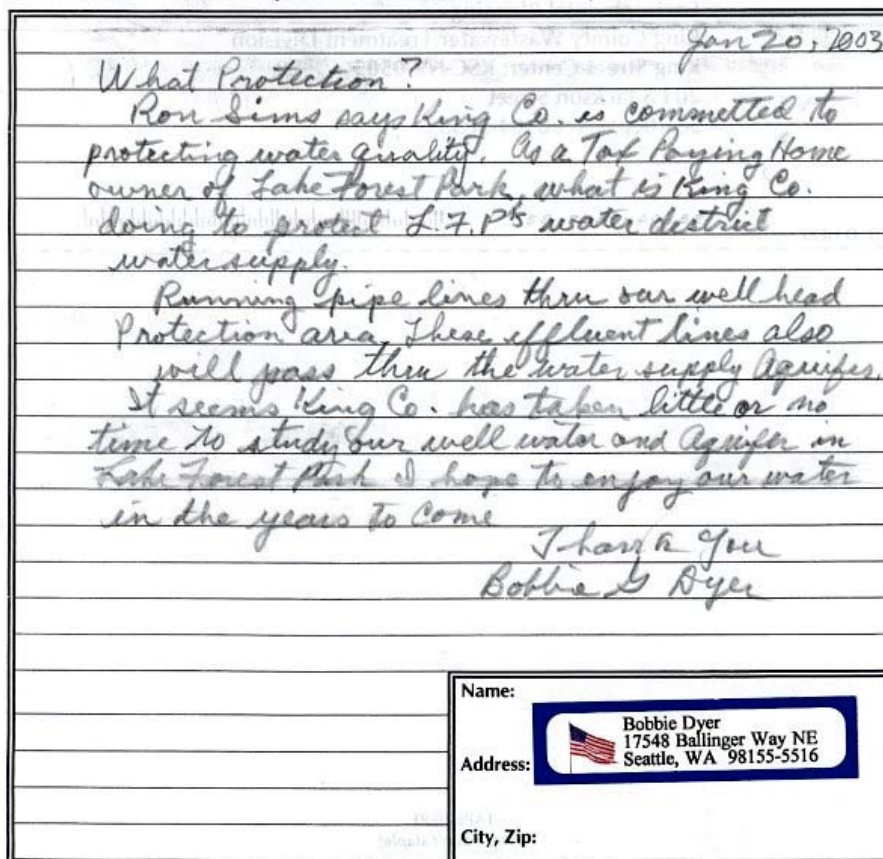 Jan 20, 2003
What Protection?
Ron Sims says King Co. is committed to
protecting water quality. As a Tax Paying Home
owner of Lake Forest Park, what is King Co.
doing to protect L.F.P's water district
water supply.
Running pipe lines thru our well head
Protection area. These effluent lines also
will pass thru the water supply Aquifer.
It seems King Co. has taken little or no
time to study our well water and Aquifer in
Lake Forest Park I hope to enjoy our water
in the years to come
Thank You
Bobbie G Dyer
Name:
Bobbie Dyer
17548 Ballinger Way NE
Address:
Seattle, WA 98155-5516
City, Zip: